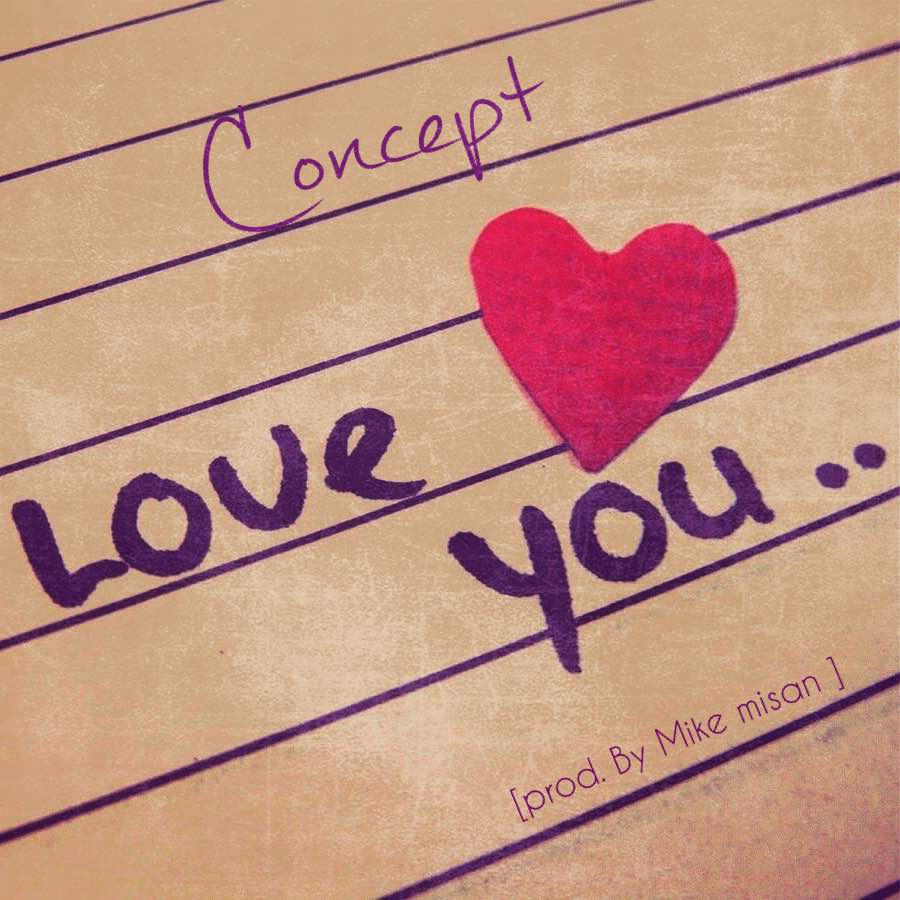 Concept
Love
you..
[prod. By Mike misan ]